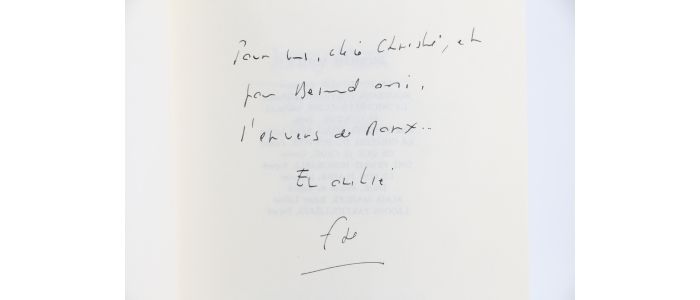 Pour vous, chère Christine, et
pour Bernard aussi,
l'envers de Marx...
En amitié